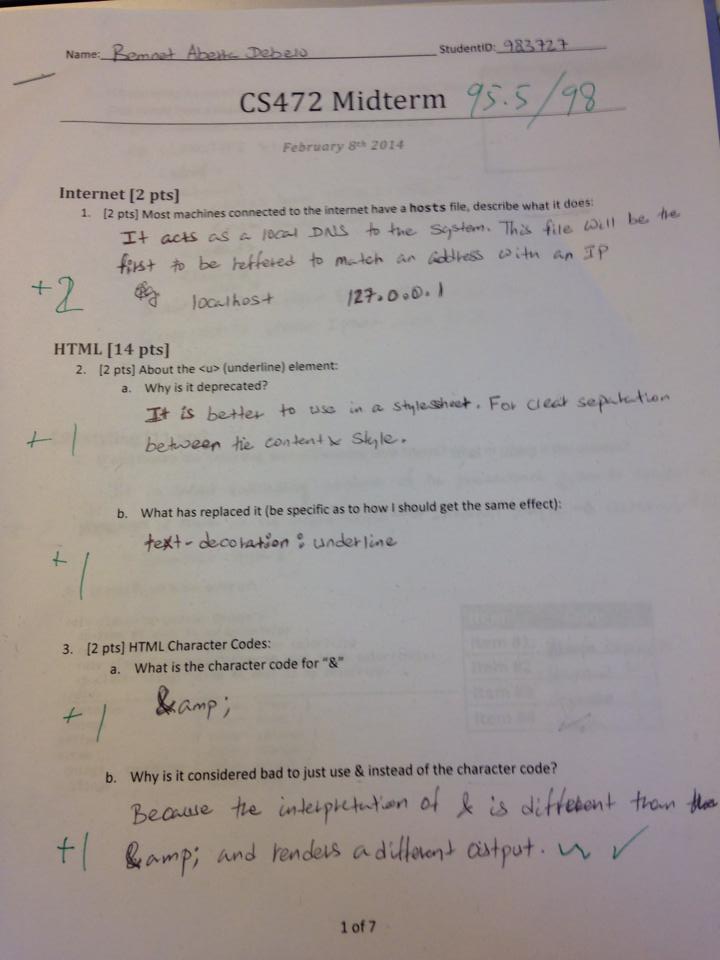 Name: Bemnet Debelo StudentID: 983727
CS472 Midterm 95.5/98
February 8th 2014
Internet [2 pts]
1. [2 pts] Most machines connected to the internet have a hosts file, describe what it does:
It acts as a local DNS to the system. This file will be the
first to be reffered to match an address with an IP
+2
eg localhost 127.0.0.1
HTML [14 pts]
2. [2 pts] About the <u> (underline) element:
a. Why is it deprecated?
It is better to use in a stylesheet. For clear separation
+1 between the content & style.
b. What has replaced it (be specific as to how I should get the same effect):
text-decoration: underline
+1
3. [2 pts] HTML Character Codes:
a. What is the character code for "&"
&amp;
+1
b. Why is it considered bad to just use & instead of the character code?
Because the interpretation of & is different than the
+1 &amp; and renders a different output. ✓
1 of 7